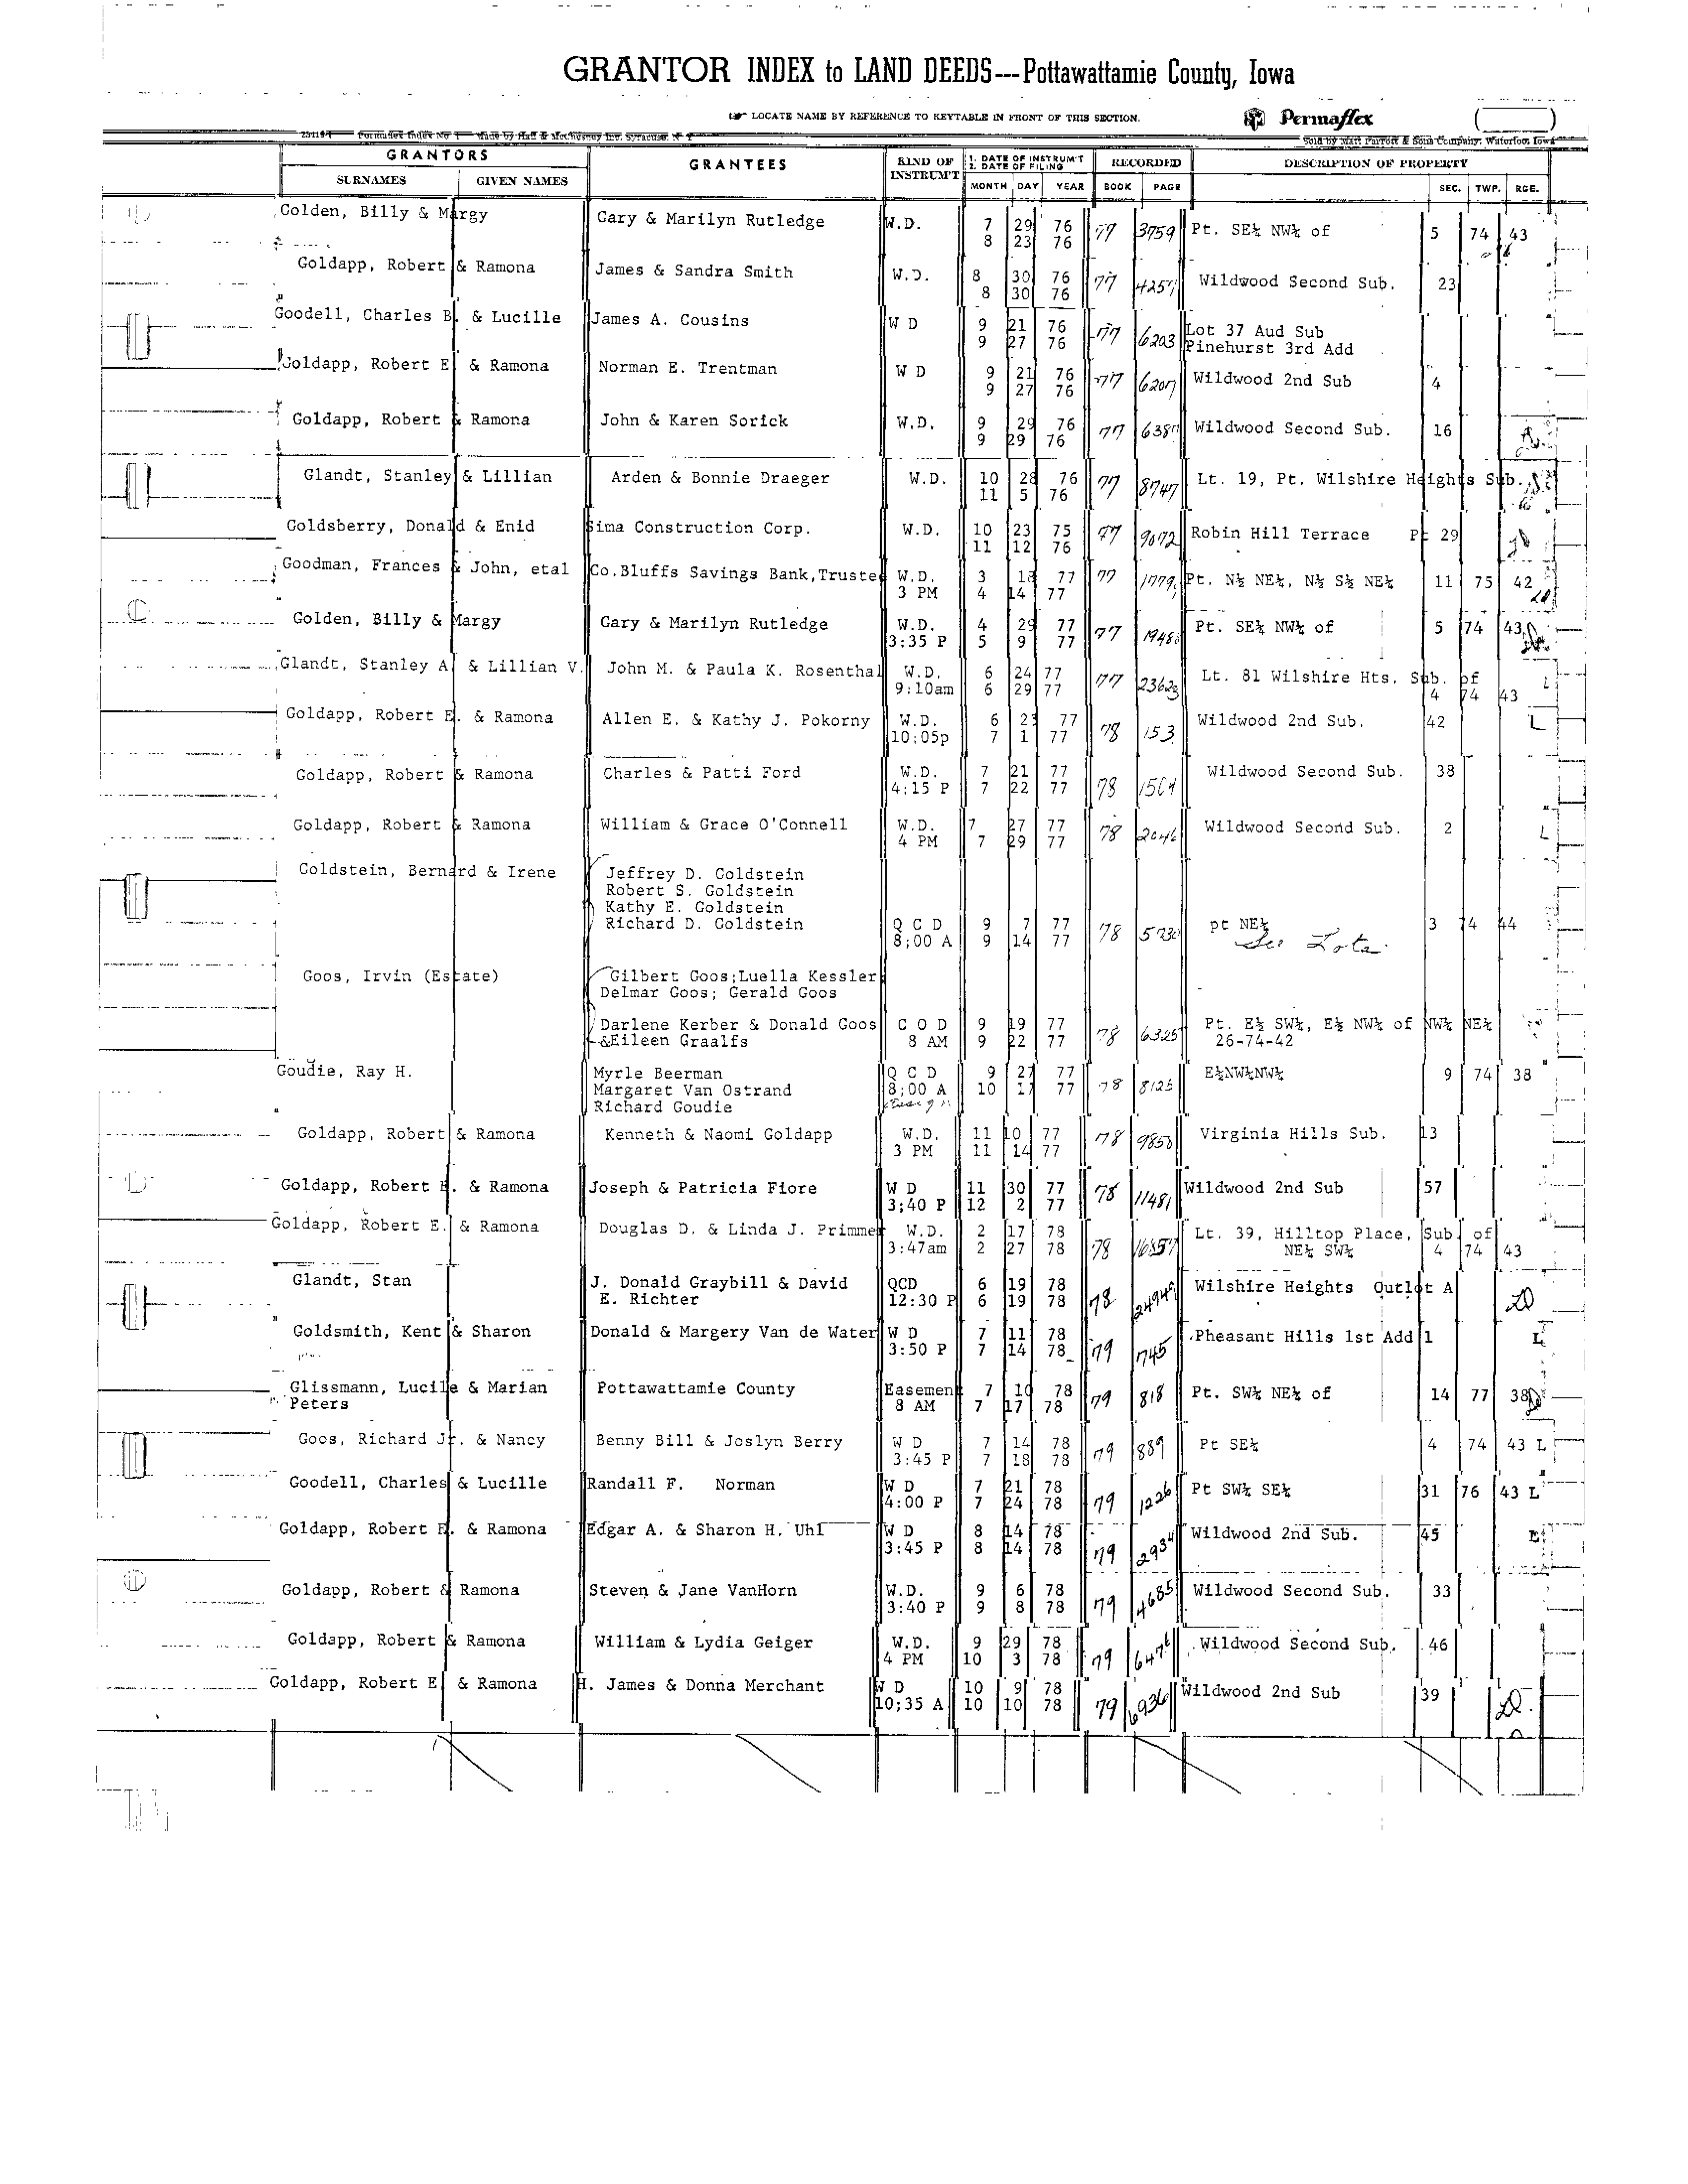 GRANTOR INDEX to LAND DEEDS---Pottawattamie County, Iowa
LOCATE NAME BY REFERENCE TO KEYTABLE IN FRONT OF THIS SECTION.
Permaflex
Sold by Matt Parrott & Sons Company, Waterloo, Iowa
GRANTORS GRANTEES KIND OF INSTRUM'T 1. DATE OF INSTRUM'T 2. DATE OF FILING RECORDED DESCRIPTION OF PROPERTY
SURNAMES GIVEN NAMES MONTH DAY YEAR BOOK PAGE SEC. TWP. RGE.
Golden, Billy & Margy Gary & Marilyn Rutledge W.D. 7 29 76 77 3759 Pt. SE¼ NW¼ of 5 74 43
8 23 76
Goldapp, Robert & Ramona James & Sandra Smith W.D. 8 30 76 77 4257 Wildwood Second Sub. 23
8 30 76
Goodell, Charles B. & Lucille James A. Cousins W D 9 21 76 77 6203 Lot 37 Aud Sub
9 27 76 Pinehurst 3rd Add
Goldapp, Robert E & Ramona Norman E. Trentman W D 9 21 76 77 6207 Wildwood 2nd Sub 4
9 27 76
Goldapp, Robert & Ramona John & Karen Sorick W.D. 9 29 76 77 6387 Wildwood Second Sub. 16
9 29 76
Glandt, Stanley & Lillian Arden & Bonnie Draeger W.D. 10 28 76 77 8747 Lt. 19, Pt. Wilshire Heights Sub.
11 5 76
Goldsberry, Donald & Enid Sima Construction Corp. W.D. 10 23 75 77 9072 Robin Hill Terrace Pt 29
11 12 76
Goodman, Frances & John, etal Co.Bluffs Savings Bank,Truste W.D. 3 18 77 77 Pt. N½ NE¼, N½ S½ NE¼ 11 75 42
3 PM 4 14 77
Golden, Billy & Margy Gary & Marilyn Rutledge W.D. 4 29 77 77 Pt. SE¼ NW¼ of 5 74 43
3:35 P 5 9 77
Glandt, Stanley A & Lillian V. John M. & Paula K. Rosenthal W.D. 6 24 77 77 23623 Lt. 81 Wilshire Hts. Sub. of
9:10am 6 29 77 4 74 43
Goldapp, Robert E. & Ramona Allen E. & Kathy J. Pokorny W.D. 6 77 78 153 Wildwood 2nd Sub. 42 L
10;05p 7 1 77
Goldapp, Robert & Ramona Charles & Patti Ford W.D. 7 21 77 78 1504 Wildwood Second Sub. 38
4:15 P 7 22 77
Goldapp, Robert & Ramona William & Grace O'Connell W.D. 7 27 77 78 2046 Wildwood Second Sub. 2 L
4 PM 7 29 77
Goldstein, Bernard & Irene Jeffrey D. Goldstein
Robert S. Goldstein
Kathy E. Goldstein
Richard D. Goldstein Q C D 9 7 77 78 pt NE¼ 3 74 44
8;00 A 9 14 77 See Lots
Goos, Irvin (Estate) Gilbert Goos;Luella Kessler
Delmar Goos; Gerald Goos
Darlene Kerber & Donald Goos C O D 9 19 77 78 6325 Pt. E½ SW¼, E½ NW¼ of NW¼ NE¼
&Eileen Graalfs 8 AM 9 22 77 26-74-42
Goudie, Ray H. Myrle Beerman Q C D 9 27 77 78 8125 E½NW¼NW¼ 9 74 38
Margaret Van Ostrand 8;00 A 10 17 77
Richard Goudie
Goldapp, Robert & Ramona Kenneth & Naomi Goldapp W.D. 11 10 77 78 9858 Virginia Hills Sub. 13
3 PM 11 14 77
Goldapp, Robert E. & Ramona Joseph & Patricia Fiore W D 11 30 77 78 11481 Wildwood 2nd Sub 57
3;40 P 12 2 77
Goldapp, Robert E. & Ramona Douglas D. & Linda J. Primmer W.D. 2 17 78 78 16857 Lt. 39, Hilltop Place, Sub of
3:47am 2 27 78 NE¼ SW¼ 4 74 43
Glandt, Stan J. Donald Graybill & David QCD 6 19 78 78 24949 Wilshire Heights Outlot A
E. Richter 12:30 P 6 19 78
Goldsmith, Kent & Sharon Donald & Margery Van de Water W D 7 11 78 79 745 Pheasant Hills 1st Add 1 L
3:50 P 7 14 78
Glissmann, Lucile & Marian Pottawattamie County Easemen 7 10 78 79 818 Pt. SW¼ NE¼ of 14 77 38
Peters 8 AM 7 17 78
Goos, Richard Jr. & Nancy Benny Bill & Joslyn Berry W D 7 14 78 79 889 Pt SE¼ 4 74 43 L
3:45 P 7 18 78
Goodell, Charles & Lucille Randall F. Norman W D 7 21 78 79 1226 Pt SW¼ SE¼ 31 76 43 L
4:00 P 7 24 78
Goldapp, Robert E. & Ramona Edgar A. & Sharon H. Uhl W D 8 14 78 79 2934 Wildwood 2nd Sub. 45
3:45 P 8 14 78
Goldapp, Robert & Ramona Steven & Jane VanHorn W.D. 9 6 78 79 4685 Wildwood Second Sub. 33
3:40 P 9 8 78
Goldapp, Robert & Ramona William & Lydia Geiger W.D. 9 29 78 79 6476 Wildwood Second Sub. 46
4 PM 10 3 78
Goldapp, Robert E & Ramona H. James & Donna Merchant W D 10 9 78 79 6936 Wildwood 2nd Sub 39
10;35 A 10 10 78